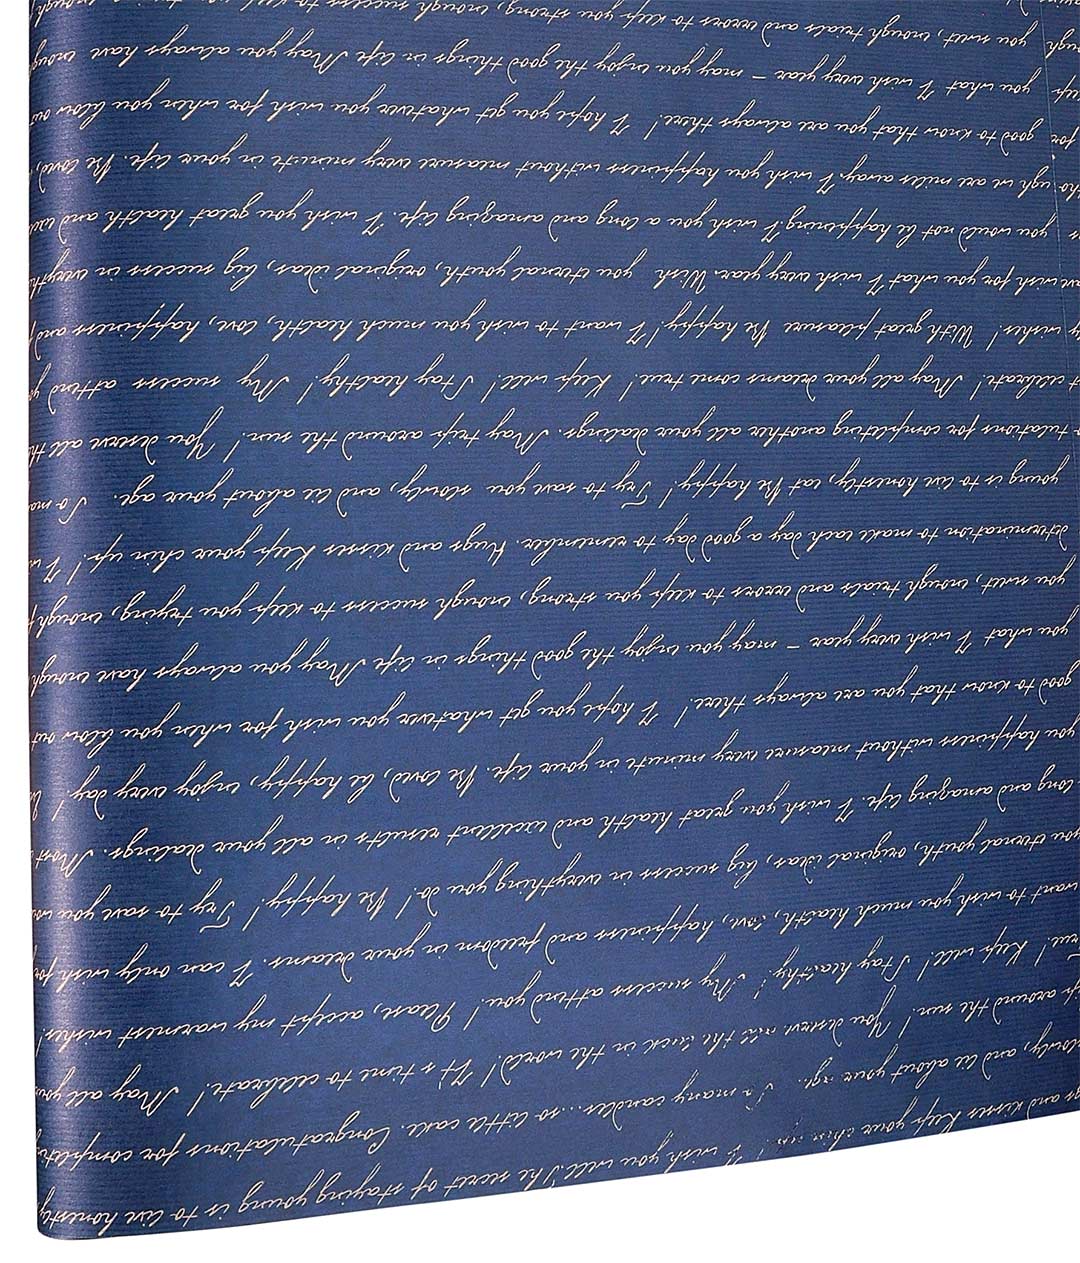 and kisses Keep your chin up! I wish you well. The secret of staying young is to live honestly
slowly, and lie about your age. So many candles...so little cake. Congratulations for completing
around the sun! You deserve all the luck in the world! It's time to celebrate! May all your
true! Keep well! Stay healthy! My success attend you! Please, accept my warmest wishes!
want to wish you much health, love, happiness and freedom in your dreams. I can only wish for
you eternal youth, original ideas, big success in everything you do! Be happy! Try to save you
long and amazing life. I wish you great health and excellent results in all your dealings. Most
you happiness without measure every minute in your life. Be loved, be happy, enjoy every day!
good to know that you are always there! I hope you get whatever you wish for when you blow out
you what I wish every year – may you enjoy the good things in life May you always have enough
you sweet, enough trials and errors to keep you strong, enough success to keep you trying, enough
determination to make each day a good day to remember. Hugs and kisses Keep your chin up! I
young is to live honestly, eat Be happy! Try to save you slowly, and lie about your age. So
tulations for completing another all your dealings. May trip around the sun! You deserve all
celebrate! May all your dreams come true! Keep well! Stay healthy! My success attend
wishes! With great pleasure Be happy! I want to wish you much health, love, happiness and
wish for you what I wish every year. Wish you eternal youth, original ideas, big success in
you would not be happening! I wish you a long and amazing life. I wish you great health and
we are miles away. I wish you happiness without measure every minute in your life. Be loved,
for good to know that you are always there! I hope you get whatever you wish for when you blow out
you what I wish every year – may you enjoy the good things in life May you always have enough
you sweet, enough trials and errors to keep you strong, enough success to